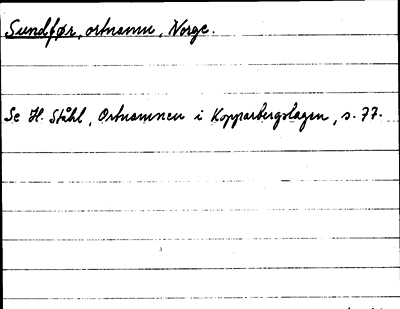 Sundfør, ortnamn, Norge.
Se H. Ståhl, Ortnamnen i Kopparbergslagen, s. 77.